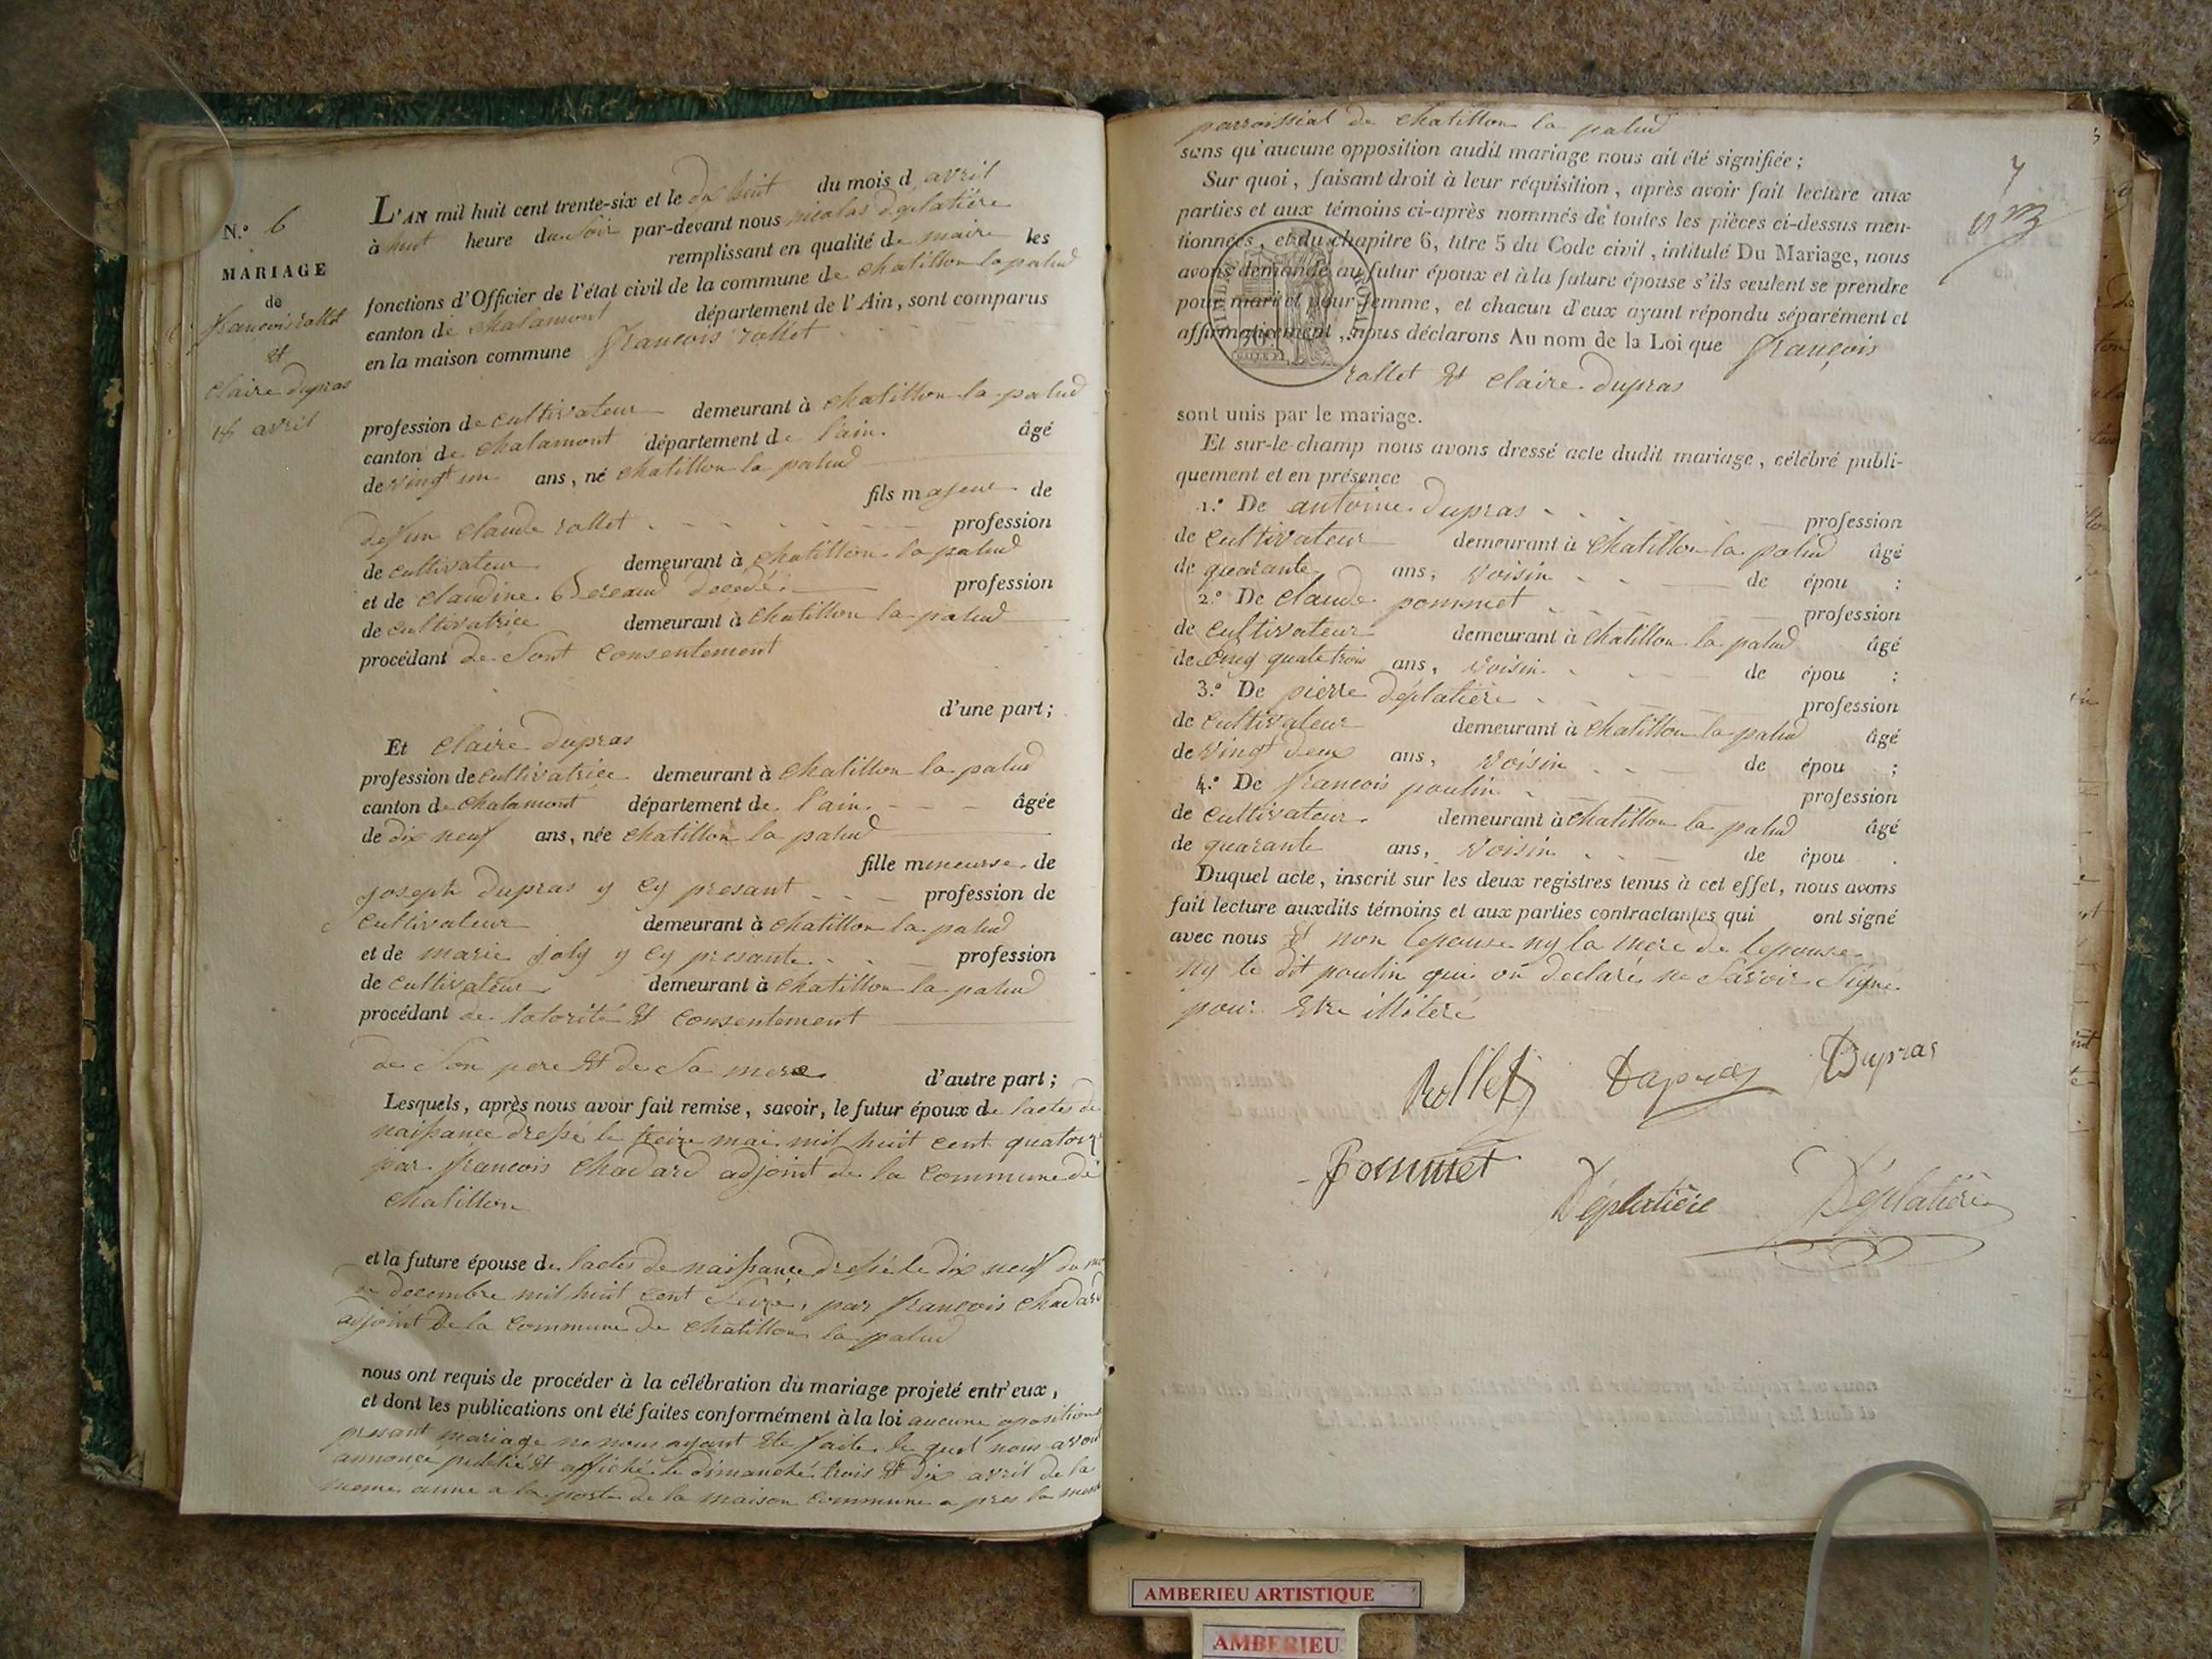 N.º 6
MARIAGE
de
françois rollet
et
claire dupras
18 avril
L'AN mil huit cent trente-six et le dix huit du mois d avril
à huit heure du soir par-devant nous nicolas déplatière
remplissant en qualité de maire les
fonctions d'Officier de l'état civil de la commune de chatillon la palud
canton de chalamont département de l'Ain, sont comparus
en la maison commune françois rollet
profession de cultivateur demeurant à chatillon la palud
canton de chalamont département de l'ain. âgé
de vingt un ans, né chatillon la palud
fils majeur de
defun claude rollet profession
de cultivateur demeurant à chatillon la palud
et de claudine Bereaud decedé profession
de cultivatrice demeurant à chatillon la palud
procédant de sont consentement
d'une part;
Et claire dupras
profession de cultivatrice demeurant à chatillon la palud
canton de chalamont département de l'ain. âgée
de dix neuf ans, née chatillon la palud
fille mineurse de
joseph dupras y cy presant profession de
cultivateur demeurant à chatillon la palud
et de marie joly y cy presante profession
de cultivateur demeurant à chatillon la palud
procédant de latorité et consentement
de son pere et de sa mere d'autre part;
Lesquels, après nous avoir fait remise, savoir, le futur époux de lactes de
naissance dressé le treize mai mil huit cent quatorze
par françois chadard adjoint de la commune de
chatillon
et la future épouse de lactes de naissance dressé le dix neuf du
de decembre mil huit cent seize, par françois chadard
adjoint de la commune de chatillon la palud
nous ont requis de procéder à la célébration du mariage projeté entr'eux,
et dont les publications ont été faites conformément à la loi aucune oposition
presant mariage ne nous ayant ete faite le quel nous avons
annonce publié et affiché le dimanche trois et dix avril de la
meme anne a la porte de la maison commune apres la messe
parroissial de chatillon la palud
sans qu'aucune opposition audit mariage nous ait été signifiée;
Sur quoi, faisant droit à leur réquisition, après avoir fait lecture aux
parties et aux témoins ci-après nommés de toutes les pièces ci-dessus men-
tionnées, et du chapitre 6, titre 5 du Code civil, intitulé Du Mariage, nous
avons demandé au futur époux et à la future épouse s'ils veulent se prendre
pour mari et pour femme, et chacun d'eux ayant répondu séparément et
affirmativement, nous déclarons Au nom de la Loi que françois
rollet et claire dupras
sont unis par le mariage.
Et sur-le-champ nous avons dressé acte dudit mariage, célébré publi-
quement et en présence
1.º De antoine dupras profession
de cultivateur demeurant à chatillon la palud âgé
de quarante ans, voisin de épou ;
2.º De claude pommet profession
de cultivateur demeurant à chatillon la palud âgé
de cinq quate trois ans, voisin de épou ;
3.º De pierre déplatière profession
de cultivateur demeurant à chatillon la palud âgé
de vingt deux ans, voisin de épou ;
4.º De françois poulin profession
de cultivateur demeurant à chatillon la palud âgé
de quarante ans, voisin de épou .
Duquel acte, inscrit sur les deux registres tenus à cet effet, nous avons
fait lecture auxdits témoins et aux parties contractantes qui ont signé
avec nous et non lepouse ny la mere de lepouse
ny le dit poulin qui on declaré ne savoir signe
pour etre illitéré
Rollet Dupras Dupras
Pommet Déplatière Déplatière
7
AMBERIEU ARTISTIQUE
AMBERIEU